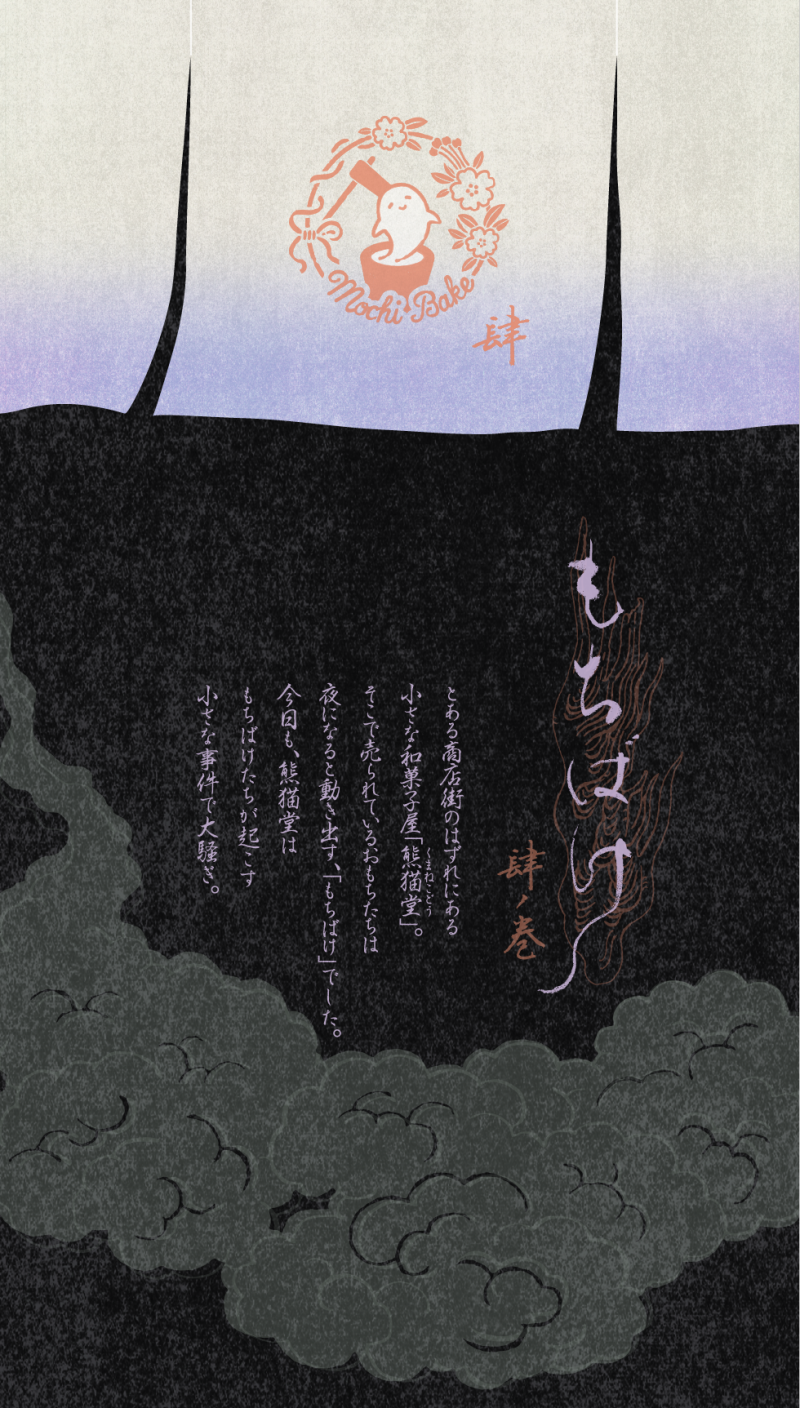 Mochi Bake
肆
もちばけ
肆ノ巻
とある商店街のはずれにある
小さな和菓子屋「熊猫堂」。
くまねこどう
そこで売られているおもちたちは
夜になると動き出す、「もちばけ」でした。
今日も、熊猫堂は
もちばけたちが起こす
小さな事件で大騒ぎ。